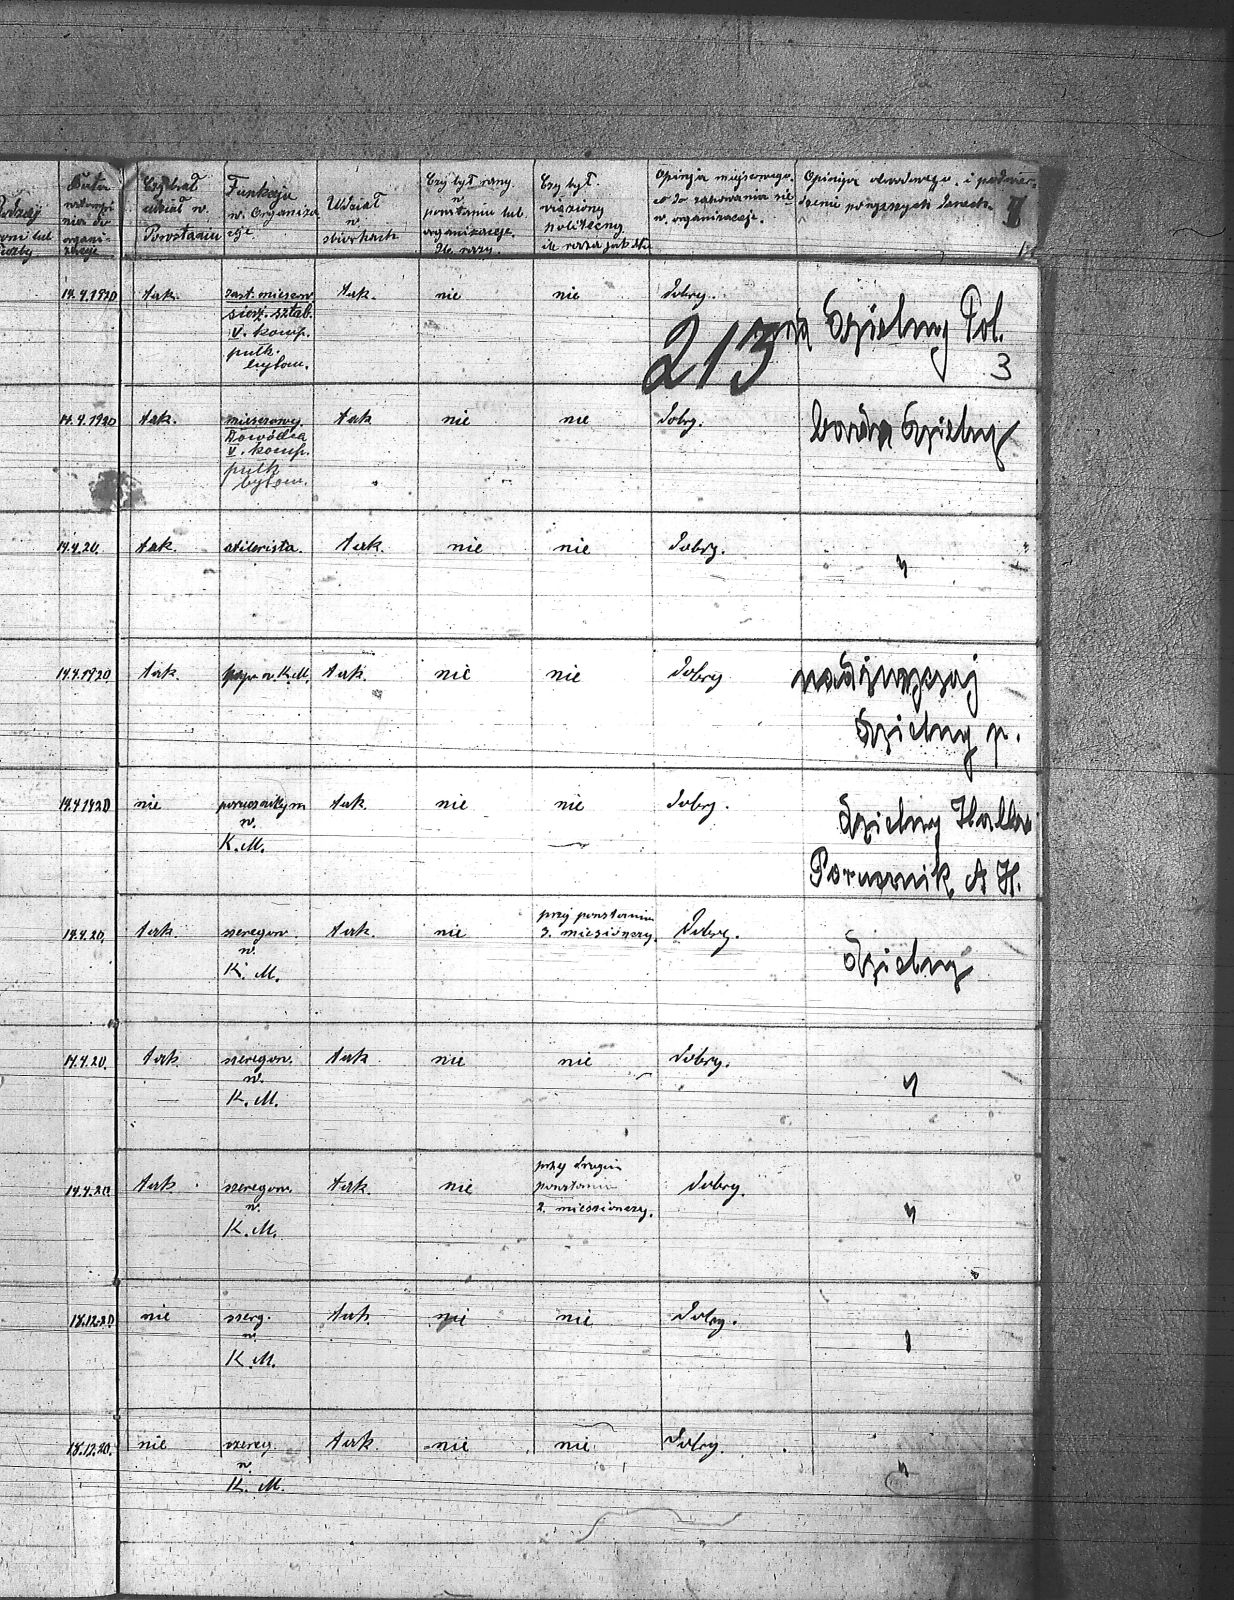 Data
Czy brał
udział w.
Powstaniu
Funkcja
w. Organiza
cyi
Udział
w.
zbiórkach
Czy był rany
w
powstaniu lub
organizacyi.
Ile razy.
Czy był.
więziony
politeczny
ile raza jak dłu
Opinja miejscowego.
co do zachowania się
w. organizacyi.
Opinija obwodowego. i podwier-
dzenie powyższych danych.
14.4.1920 tak. zast. miejscow. tak. nie nie dobry.
sierż. sztab.
V. komp.
pułk.
bytom.
213
Dzielny Pol.
3
14.4.1920 tak. miejscowy tak nie nie dobry.
Dowódca
V. komp.
pułk
bytom.
bardzo Dzielny
14.4.20. tak. atilerista. tak. nie nie dobry.
"
14.4.1920 tak w. K.M. tak. nie nie dobry
nadzwyczaj
dzielny p.
14.4.1920 nie tak nie nie dobry.
w.
K.M.
dzielny
Porucznik A H.
14.4.20. tak szeregow. tak. nie przy powstaniu dobry.
3. miesionczy.
w.
K. M.
dzielny
14.4.20. tak szeregow. tak nie nie dobry.
w.
K. M.
"
14.4.20 tak szeregow. tak. nie przy drugim dobry.
powstaniu
2. miesionczy.
w.
K. M.
"
18.12.20 nie szerg. tak nie nie dobry.
w.
K. M.
18.12.20. nie szereg. tak nie nie dobry.
w.
K. M.
"